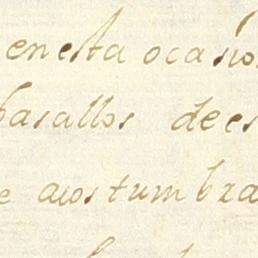 en esta ocasio
basallos dees
e acostumbra